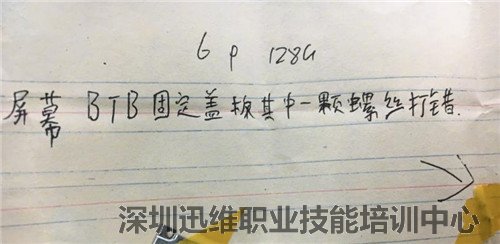 6 p 128G
屏幕 BTB 固定盖板其中一颗螺丝打错.
深圳迅维职业技能培训中心